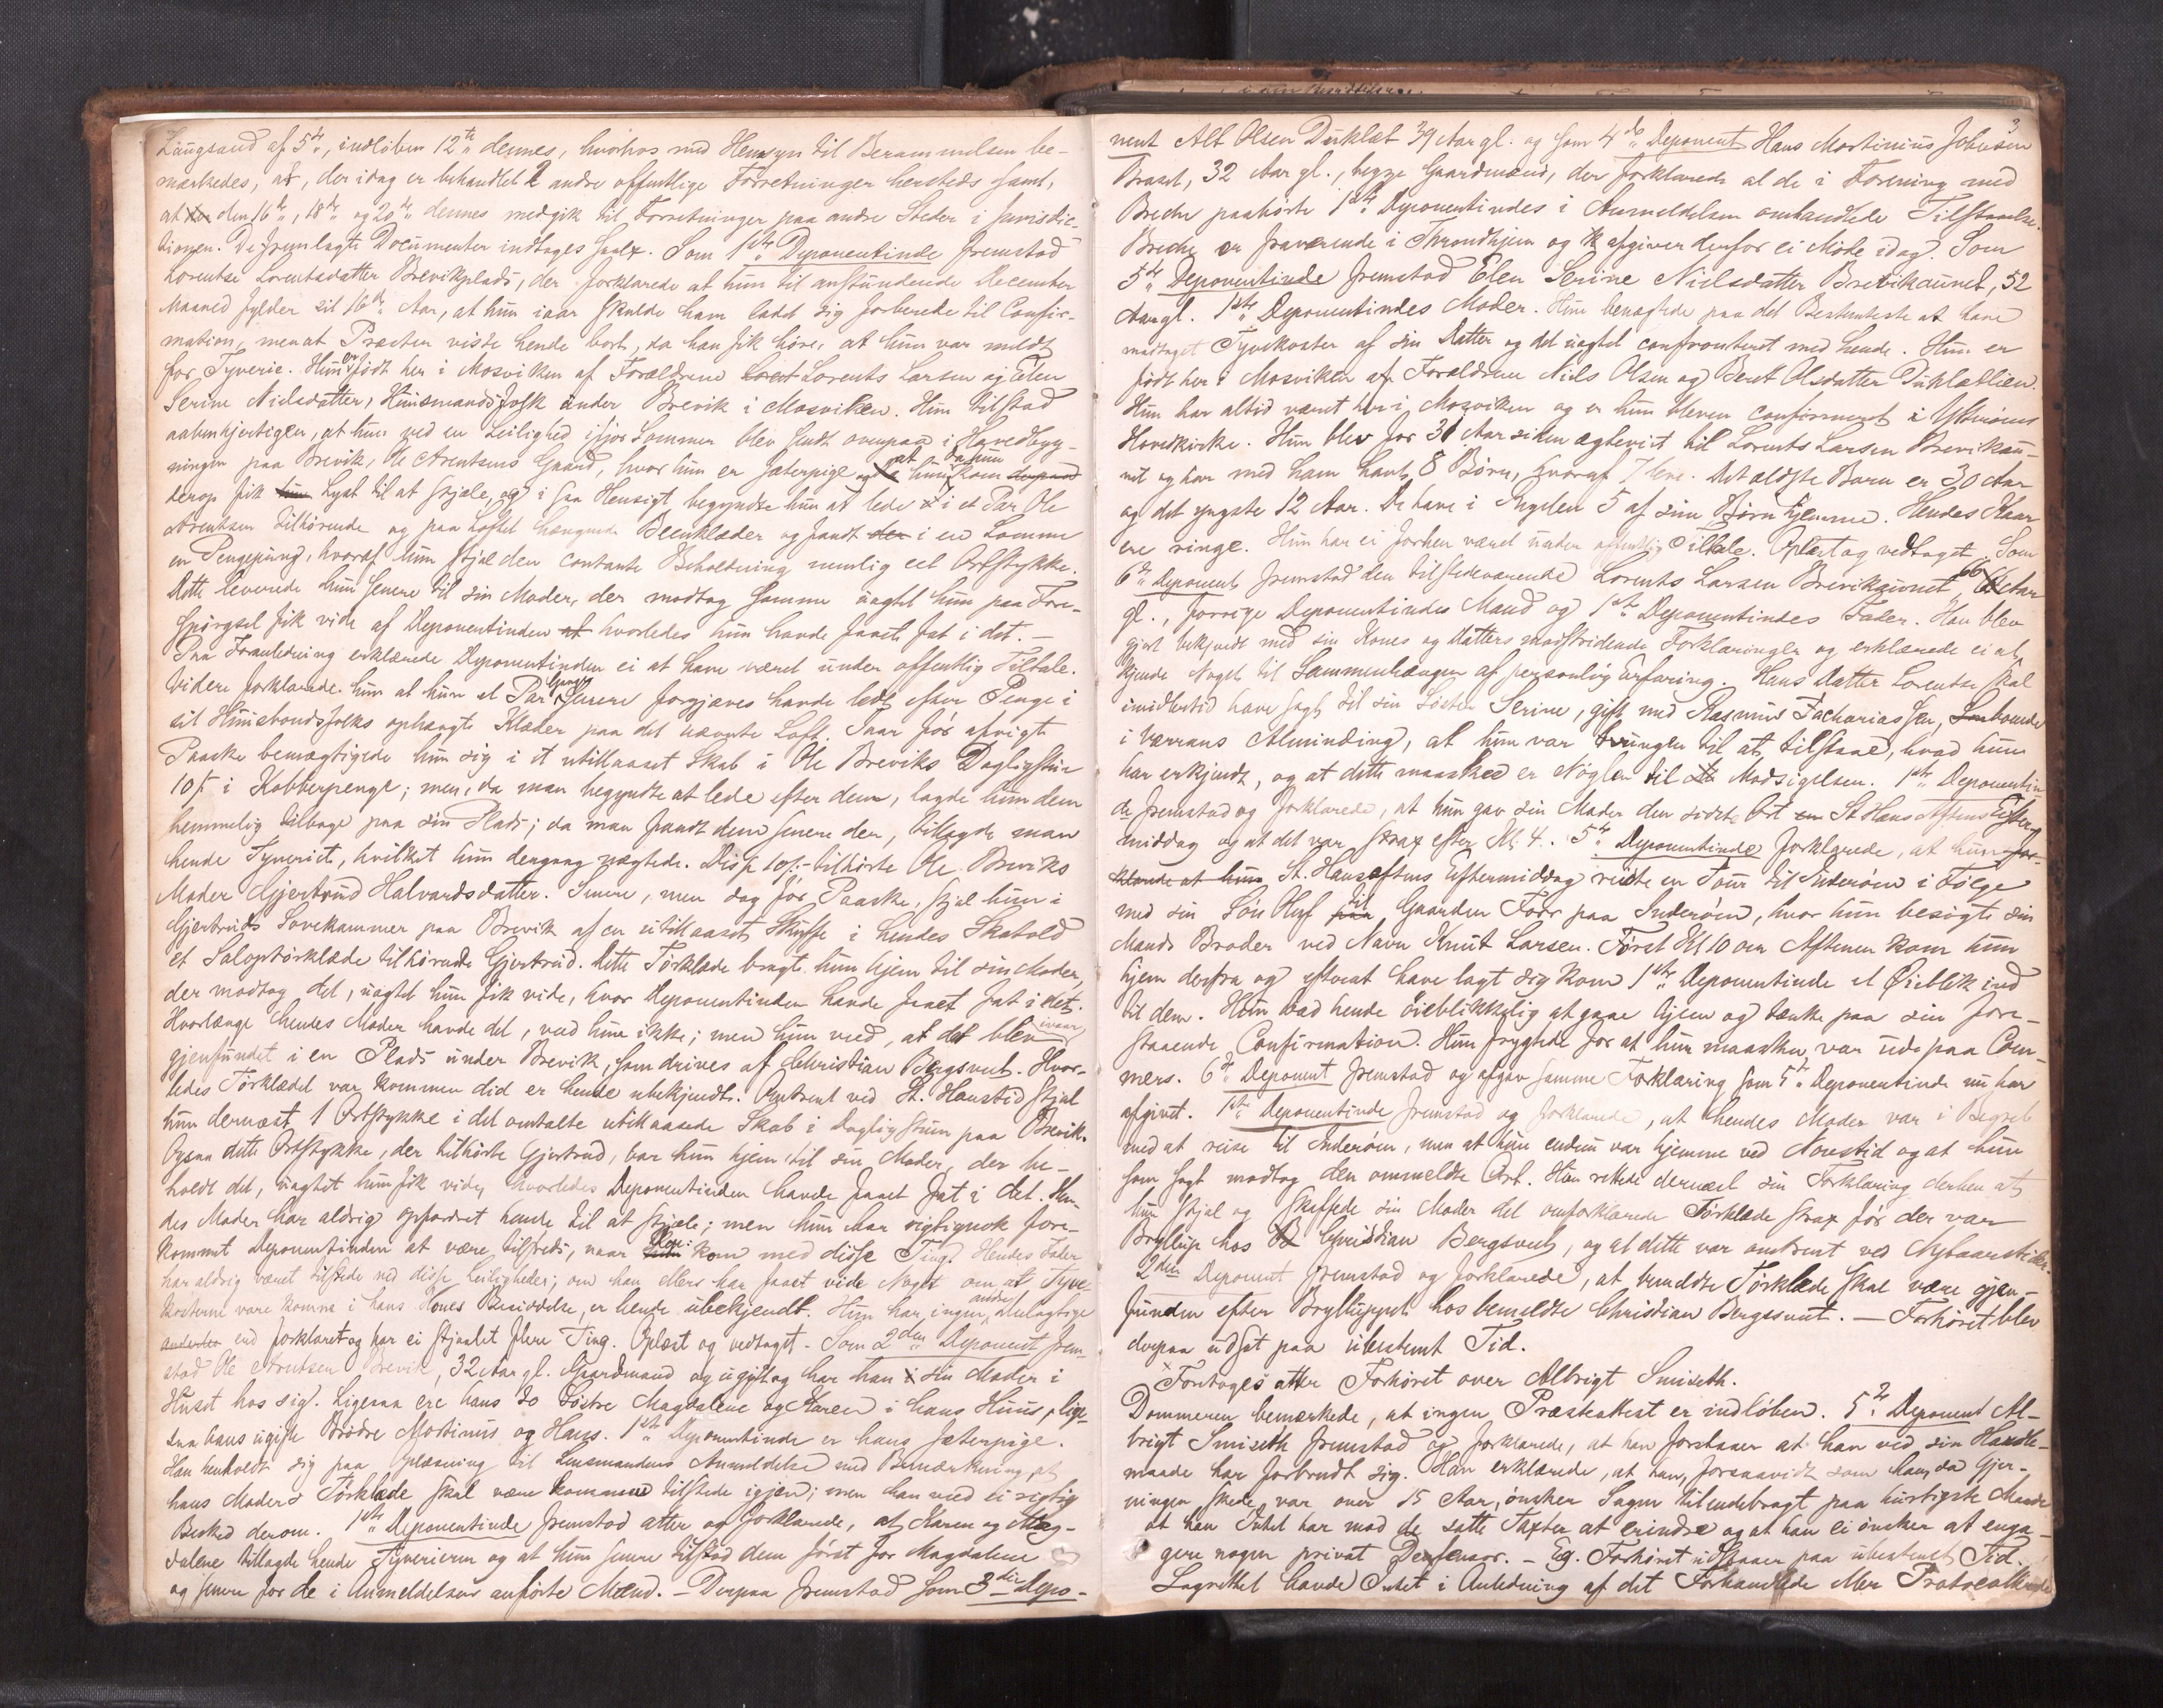 Langsand af 5te, indløben 12te dennes, hvorhos med Hensyn til Berammelsen be-
mærkedes, at, der idag er behandlet 2 andre offentlige Forretninger hersteds samt,
at den 16de, 18de og 20de dennes medgik til Forretninger paa andre Steder i Jurisdic-
tionen. De fremlagte Documenter indtages Saalr. Som 1ste Deponentinde fremstod
Lorentse Lorentsdatter Brevikplads, der forklarede at hun til anstundende December
Maaned fylder sit 16de Aar, at hun iaar skulde have ladet sig forberede til Confir-
mation, men at Præsten viste hende bort, da han fik høre, at hun var meldt
for Tyverie. Hun er født her i Mosviken af Forældrene Lorents Larsen og Elen
Serine Nielsdatter, Huusmandsfolk under Brevik i Mosviken. Hun tilstod
aabenhjertigen, at hun ved en Leilighed ifjor Sommer blev sendt ovenpaa i Hovedbyg-
ningen paa Brevik, Ole Arentsens Gaard, hvor hun er Jæterpige og at hun da hun kom
derop fik Lyst til at stjæle, og i saa Hensigt begyndte hun at lede i et Par Ole
Arentsen tilhørende og paa Loftet hængende Beenklæder og fandt i en Lomme
en Pengepung, hvoraf hun stjal den contante Beholdning nemlig eet Ortstykke.
Dette leverede hun senere til sin Moder, der modtog samme uagtet hun paa Fore-
spørgsel fik vide af Deponentinden hvorledes hun havde faaet fat i det. —
Paa Foranledning erklærede Deponentinden ei at have været under offentlig Tiltale.
Videre forklarede hun at hun et Par Gange senere forgjæves havde ledt efter Penge i
sit Huusbondsfolks ophængte Klæder paa det nævnte Loft. Saar før afvigte
Paaske bemægtigede hun sig i et utillaaset Skab i Ole Breviks Dagligstue
10 ß i Kobberpenge; men, da man begyndte at lede efter dem, lagde hun dem
hemmelig tilbage paa sin Plads; da man fandt dem senere der, tillagde man
hende Tyveriet, hvilket hun dengang nægtede. Disse 10 ß tilhørte Ole Breviks
Moder Gjertrud Halvardsdatter. Senere, men dog før Paaske, stjal hun i
Gjertruds Sovekammer paa Brevik af en utillaaset Skuffe i hendes Skatold
et Saloptørklæde tilhørende Gjertrud. Dette Tørklæde bragte hun hjem til sin Moder,
der modtog det, uagtet hun fik vide, hvor Deponentinden havde faaet fat i det.
Hvorlænge hendes Moder havde det, ved hun ikke; men hun ved, at det blev ivaar
gjenfundet i en Plads under Brevik, som drives af Christian Bergsveet. Hvor-
ledes Tørklædet var kommen did er hende ubekjendt. Omtrent ved St. Hanstid stjal
hun dernæst 1 Ortstykke i det omtalte utillaasede Skab i Dagligstuen paa Brevik.
Ogsaa dette Ortstykke, der tilhørte Gjertrud, bar hun hjem til sin Moder, der be-
holdt det, uagtet hun fik vide, hvorledes Deponentinden havde faaet fat i det. Hen-
des Moder har aldrig opfordret hende til at stjæle; men hun har rigtignok fore-
kommet Deponentinden at være tilfreds, naar kom med disse Ting. Hendes Fader
har aldrig været tilstede ved disse Leiligheder; om han ellers har faaet vide Noget om at Tyve-
kosterne vare komne i hans Kones Besiddelse, er hende ubekjendt. Hun har ingen andre Meddelagtige
end forklaret og har ei stjaalet flere Ting. Oplæst og vedtaget. Som 2den Deponent frem-
stod Ole Arentsen Brevik, 32 Aar gl. Gaardmand og ugift og har han sin Moder i
Huset hos sig. Ligesaa ere hans to Søstre Magdalene og Karen i hans Huus, lige-
saa hans ugifte Brødre Mortinus og Hans. 1ste Deponentinde er hans Jæterpige.
Han henholdt sig paa Oplæsning til Lensmandens Anmeldelse med Bemærkning, at
hans Moders Tørklæde skal være kommet tilstede igjen; men han ved ei rigtig
Besked derom. 1ste Deponentinde fremstod atter og forklarede, at Karen og Mag-
dalene tillagde hende Tyverierne og at hun senere tilstod dem først for Magdalene
og senere for de i Anmeldelsen anførte Mænd. — Derpaa fremstod som 3die Depo-
3
nent Alb Olsen Duklæt 39 Aar gl. og som 4de Deponent Hans Mortinius Johnsen
Braset, 32 Aar gl., begge Gaardmænd, der forklarede at de i Forening med
Breche paahørte 1ste Deponentindes i Anmeldelsen omhandlede Tilstaaelse.
Breche er fraværende i Throndhjem og afgiver derfor ei Møde idag. Som
5te Deponentinde fremstod Elen Serine Nielsdatter Brevikaunet, 52
Aar gl. 1ste Deponentindes Moder. Hun benægtede paa det Bestemteste at have
modtaget Tyvekoster af sin Datter og det uagtet confronteret med hende. Hun er
født her i Mosviken af Forældrene Niels Olsen og Beret Olsdatter Duklætlien.
Hun har altid været her i Mosviken og er hun bleven confirmeret i Ytterøens
Hovedkirke. Hun blev for 31 Aar siden ægteviet til Lorents Larsen Brevikau-
net og har med ham havt 8 Børn, hvoraf 7 leve. Det ældste Barn er 30 Aar
og det yngste 12 Aar. De have i Regelen 5 af sine Børn hjemme. Hendes Kaar
ere ringe. Hun har ei forhen været under offentlig Tiltale. Oplæst og vedtaget. Som
6te Deponent fremstod den tilstedeværende Lorents Larsen Brevikaunet, 66 Aar
gl., forrige Deponentindes Mand og 1ste Deponentindes Fader. Han blev
gjort bekjendt med sin Kones og Datters modstridende Forklaringer og erklærede ei at
kjende Noget til Sammenhængen af personlig Erfaring. Hans Datter Lorentse skal
imidlertid have sagt til sin Søster Serine, gift med Rasmus Zachariassen,
i Værrans Alminding, at hun var tvungen til at tilstaae, hvad hun
har erkjendt, og at dette maaskee er Nøglen til Modsigelsen. 1ste Deponentin
de fremstod og forklarede, at hun gav sin Moder den sidste Ort St Hans Aftens Efter-
middag og at det var strax efter Kl. 4. 5te Deponentinde forklarede, at hun for-
klarede at hun St. Hansaftens Eftermiddag reiste en Tour til Inderøen i Følge
med sin Søn Oluf til Gaarden Foor paa Inderøen, hvor hun besøgte sin
Mands Broder ved Navn Knut Larsen. Først Kl. 10 om Aftenen kom hun
hjem derfra og efterat have lagt sig kom 1ste Deponentinde et Øieblik ind
til dem. Hun bad hende øieblikkelig at gaae hjem og tænke paa sin fore-
staaende Confirmation. Hun frygtede for at hun maaskee var ude paa Com-
mers. 6te Deponent fremstod og afgav samme Forklaring som 5te Deponentinde nu har
afgivet. 1ste Deponentinde fremstod og forklarede, at hendes Moder var i Begreb
med at reise til Inderøen, men at hun endnu var hjemme ved Nonestid og at hun
som sagt modtog den ommeldte Ort. Hun rettede dernæst sin Forklaring derhen at
hun stjal og skaffede sin Moder det omforklarede Tørklæde strax før der var
Bryllup hos Christian Bergsveet, og at dette var omtrent ved Nytaarstider.
2den Deponent fremstod og forklarede, at bemeldte Tørklæde skal være gjen-
funden efter Brylluppet hos bemeldte Christian Bergsveet. — Forhøret blev
derpaa udsat paa ubestemt Tid.
Foretoges atter Forhøret over Albrigt Smiseth.
Dommeren bemærkede, at ingen Præsteattest er indløben. 5te Deponent Al-
brigt Smiseth fremstod og forklarede, at han forstaaer at han ved sin Handle-
maade har forbrudt sig. Han erklærede, at han, forsaavidt som han, da Gjer-
ningen skede var over 15 Aar, ønsker Sagen tilendebragt paa hurtigste Maade
at han Intet har mod de satte Taxter at erindre og at han ei ønsker at enga-
gere nogen privat Defensor. — Eg. Forhøret udstaaer paa ubestemt Tid.
Lagrettet havde Intet i Anledning af det Forhandlede eller Protocollerede